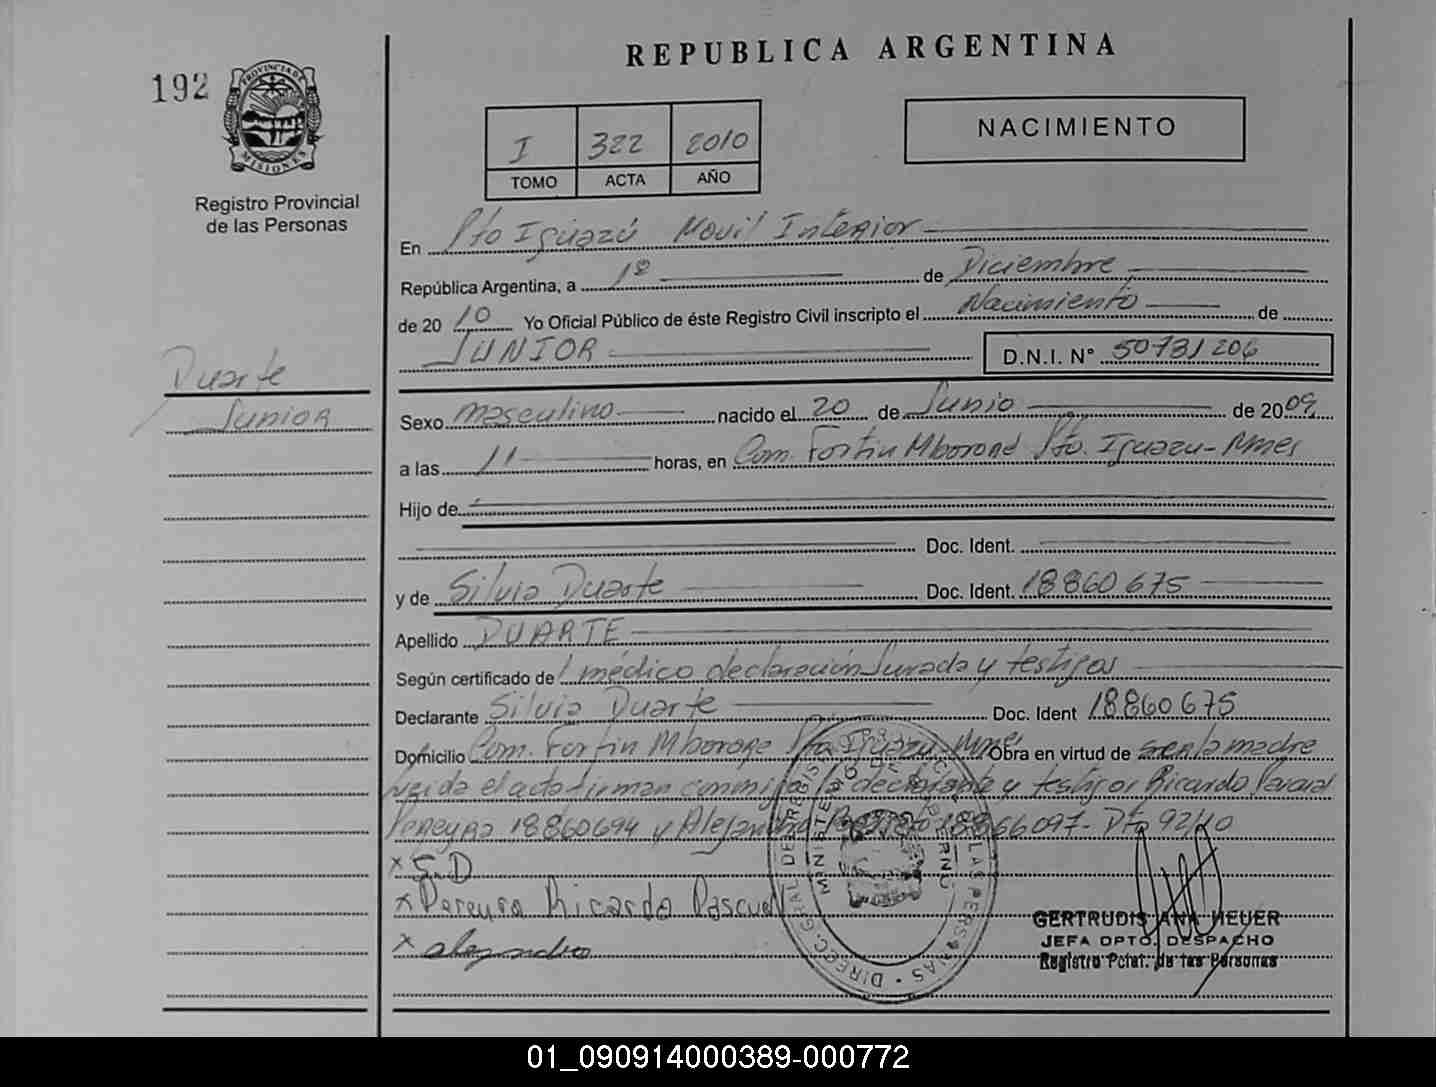 REPUBLICA ARGENTINA
192
PROVINCIA DE
MISIONES
Registro Provincial
de las Personas
I 322 2010
TOMO ACTA AÑO
NACIMIENTO
En Pto Iguazú Movil Interior
República Argentina, a 1º de Diciembre
de 20 10 Yo Oficial Público de éste Registro Civil inscripto el Nacimiento de
JUNIOR D.N.I. Nº 50731206
Duarte
Junior
Sexo masculino nacido el 20 de Junio de 2009
a las 11 horas, en Com. Fortin Mborore Pto. Iguazu-Mnes
Hijo de
Doc. Ident.
y de Silvia Duarte Doc. Ident. 18860675
Apellido DUARTE
Según certificado de médico declaración Jurada y testigos
Declarante Silvia Duarte Doc. Ident 18860675
Domicilio Com. Fortin Mborore Pto Iguazu-Mnes Obra en virtud de ser la madre
Leida el acta firman conmigo la declarante y testigos Ricardo Pascual
Pereyra 18860694 y Alejandro 18866097- Dto 92/10
x S.D
x Pereyra Ricardo Pascual
x alejandro
DIRECC. GRAL DEL REGISTRO PROVINCIAL DE LAS PERSONAS
MINISTERIO DE GOBIERNO
GERTRUDIS ANA HEUER
JEFA DPTO. DESPACHO
Registro Pcial. de las Personas
01_090914000389-000772